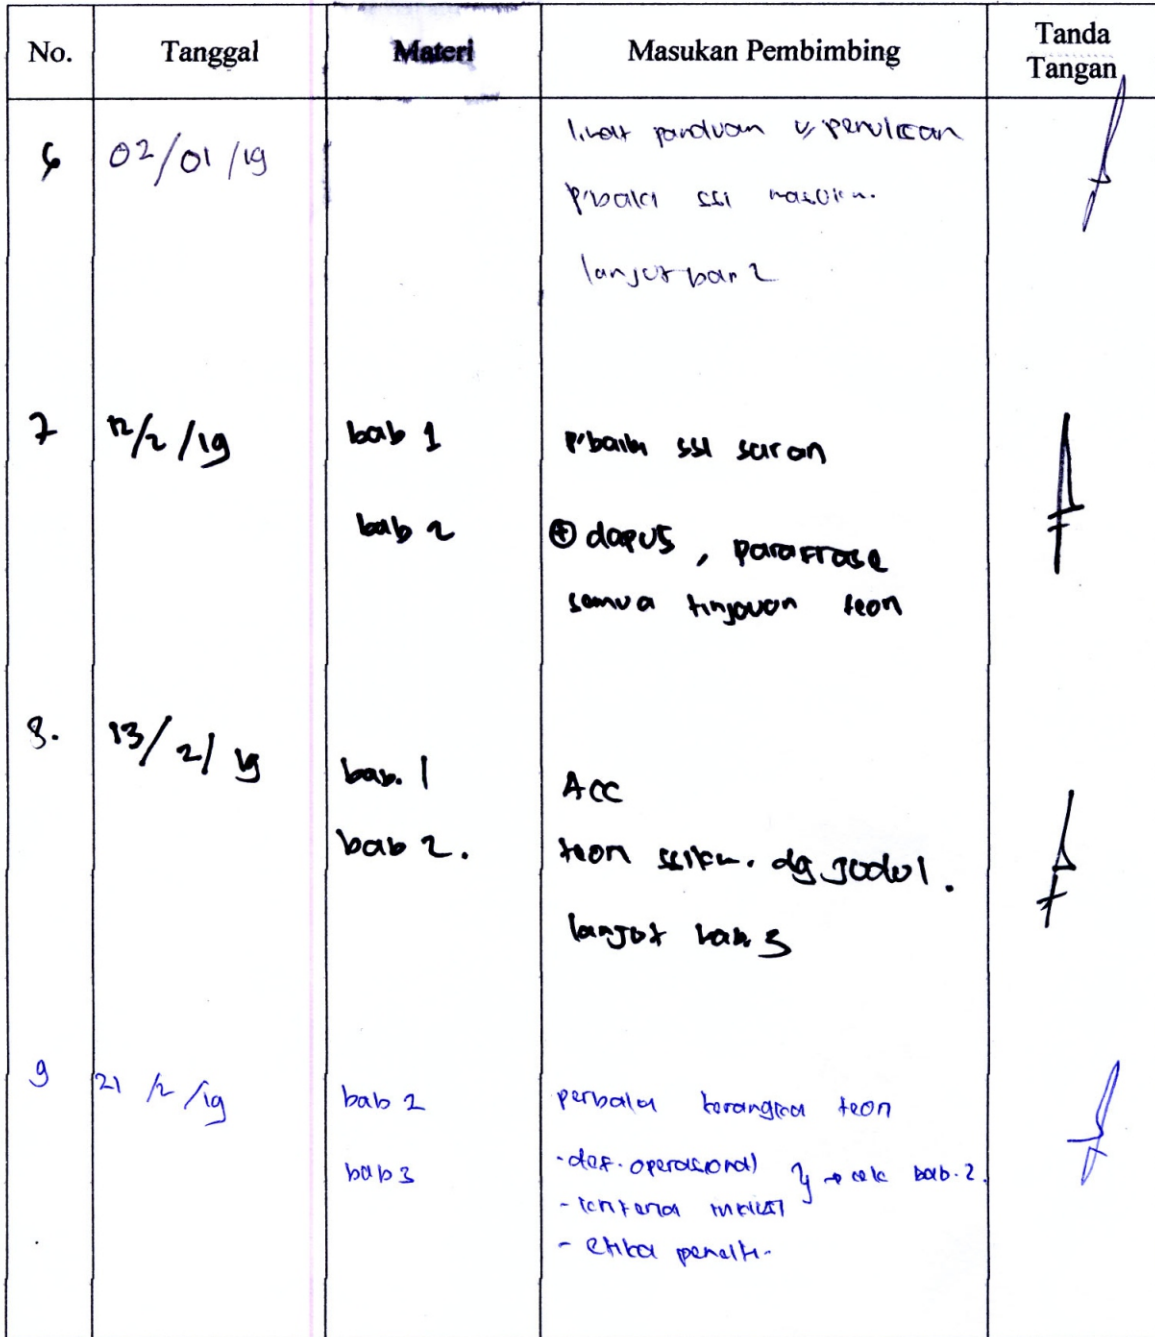 No. Tanggal Materi Masukan Pembimbing Tanda Tangan
6 02/01/19 lihat panduan u/ penulisan
p'baiki ssi masukn.
lanjut bab 2
7 12/2/19 bab 1 p'baiki ssi saran
bab 2 ⊕ dapus, parafrase
semua tinjauan teori
8. 13/2/19
bab. 1 Acc
bab 2. teori dg judul.
lanjut bab 3
9 21/2/19 bab 2 perbaiki kerangka teori
bab 3 - def. operasional → cek bab. 2.
- kriteria inklusi
- etika penelit-